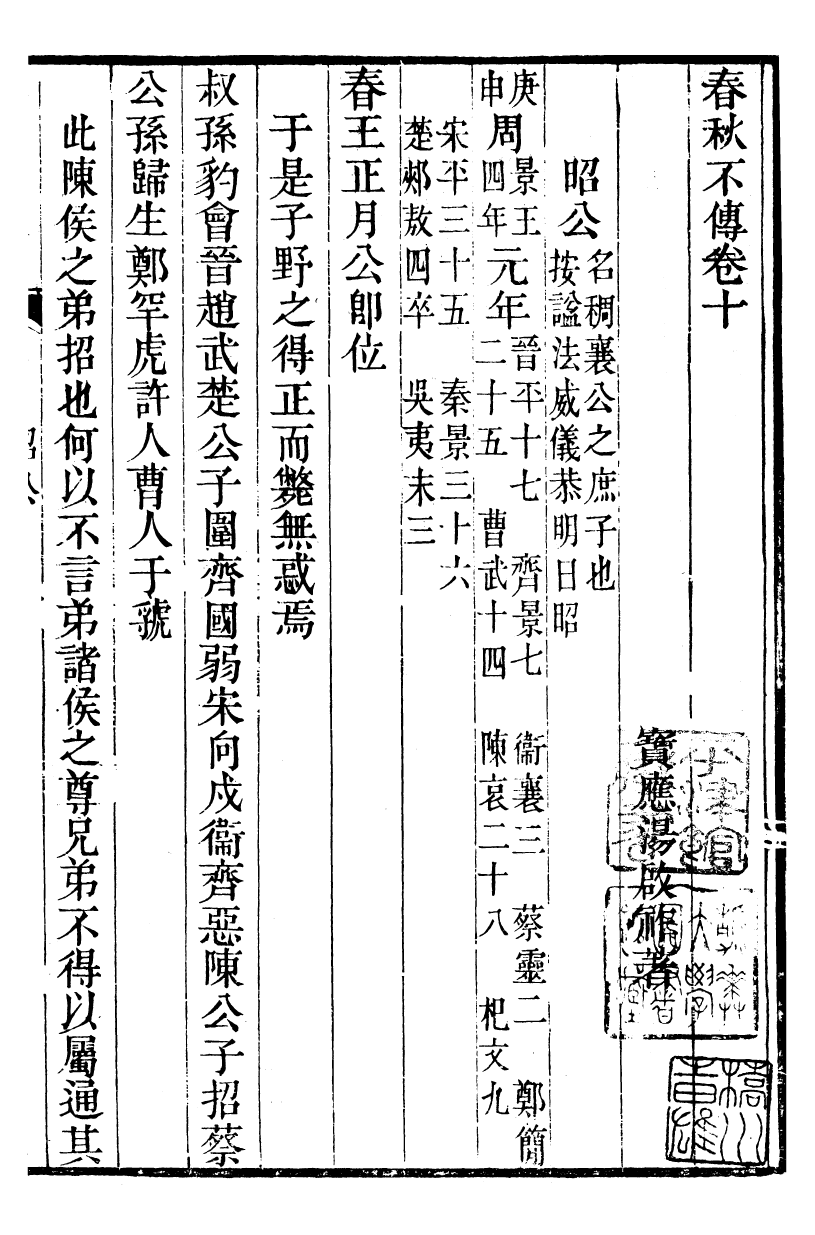 春秋不傳卷十
寶應湯啟祚著
昭公 名稠襄公之庶子也
按謚法威儀恭明日昭
庚申周景王四年元年晉平十七 齊景七 衞襄三 蔡靈二 鄭簡
二十五 曹武十四 陳哀二十八 杞文九
宋平三十五 秦景三十六
楚郟敖四卒 吳夷末三
春王正月公卽位
于是子野之得正而斃無惑焉
叔孫豹會晉趙武楚公子圍齊國弱宋向戍衞齊惡陳公子招蔡
公孫歸生鄭罕虎許人曹人于虢
此陳侯之弟招也何以不言弟諸侯之尊兄弟不得以屬通其